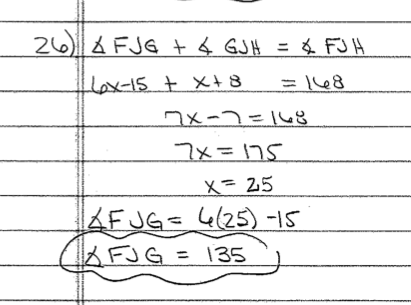 26) ∡FJG + ∡GJH = ∡FJH
6x-15 + x+8 = 168
7x-7 = 168
7x = 175
x = 25
∡FJG = 6(25) -15
∡FJG = 135